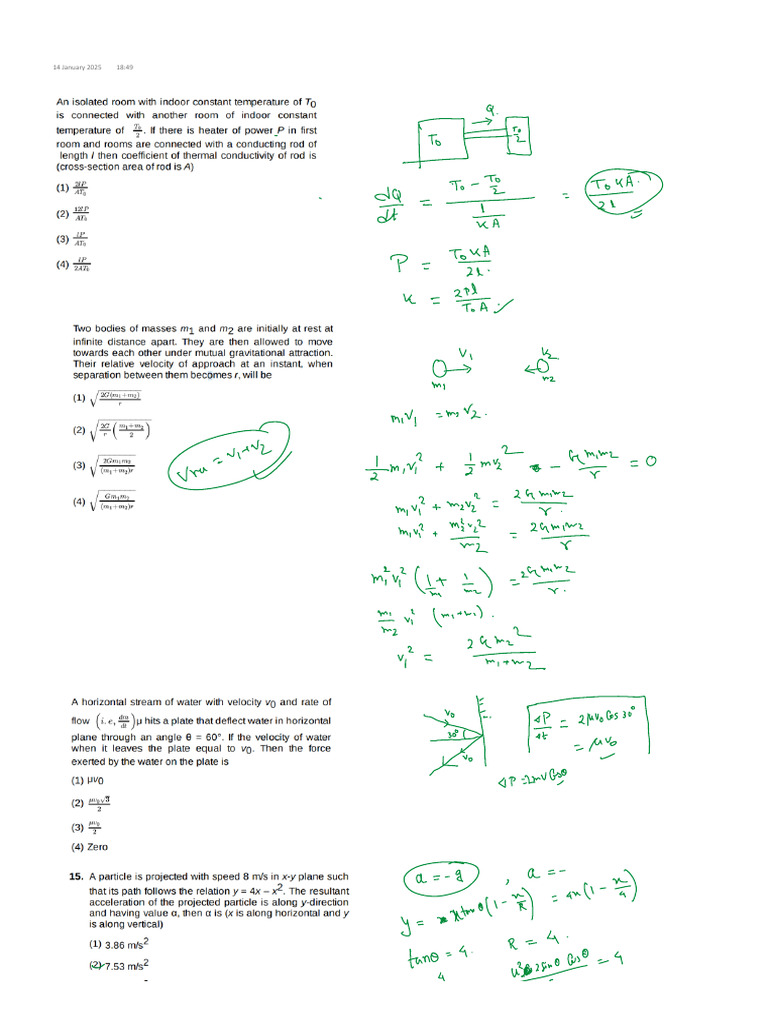 14 January 2025 18:49
An isolated room with indoor constant temperature of T₀
is connected with another room of indoor constant
temperature of T₀/2. If there is heater of power P in first
room and rooms are connected with a conducting rod of
length l then coefficient of thermal conductivity of rod is
(cross-section area of rod is A)
(1) 2lP/AT₀
(3) lP/AT₀
(4) lP/2AT₀
Q
T₀
T₀/2
dQ/dt = (T₀ - T₀/2)/(l/KA) = T₀KA/2l
P = T₀KA/2l.
K = 2Pl/T₀A
Two bodies of masses m₁ and m₂ are initially at rest at
infinite distance apart. They are then allowed to move
towards each other under mutual gravitational attraction.
Their relative velocity of approach at an instant, when
separation between them becomes r, will be
(1) √(2G(m₁+m₂)/r)
(2) √(2G/r (m₁+m₂/2))
(3) √(2Gm₁m₂/(m₁+m₂)r)
(4) √(Gm₁m₂/(m₁+m₂)r)
V₁
V₂
m₁
m₂
m₁V₁ = m₂V₂.
1/2 m₁v₁² + 1/2 mv₂² - Gm₁m₂/r = 0
m₁v₁² + m₂v₂² = 2Gm₁m₂/r.
m₁v₁² + m₂²v₂²/m₂ = 2Gm₁m₂/r
m₁²v₁² (1/m₁ + 1/m₂) = 2Gm₁m₂/r.
m₁/m₂ v₁² (m₁+m₂).
v₁² = 2Gm₂²/m₁+m₂
= v₁+v₂
A horizontal stream of water with velocity v₀ and rate of
flow (i.e, dm/dt) μ hits a plate that deflect water in horizontal
plane through an angle θ = 60°. If the velocity of water
when it leaves the plate equal to v₀. Then the force
exerted by the water on the plate is
(1) μv₀
(2) μv₀√3/2
(3) μv₀/2
(4) Zero
v₀
30°
v₀
ΔP/Δt = 2μv₀ Cos 30°
= μv₀
ΔP = 2mv Cosθ
15. A particle is projected with speed 8 m/s in x-y plane such
that its path follows the relation y = 4x – x². The resultant
acceleration of the projected particle is along y-direction
and having value α, then α is (x is along horizontal and y
is along vertical)
(1) 3.86 m/s²
(2) 7.53 m/s²
a = -g , a = -
y = x tanθ(1 - x/R) = 4x(1 - x/4)
tanθ = 4.
4
R = 4.
u² 2sinθ Cosθ = 4